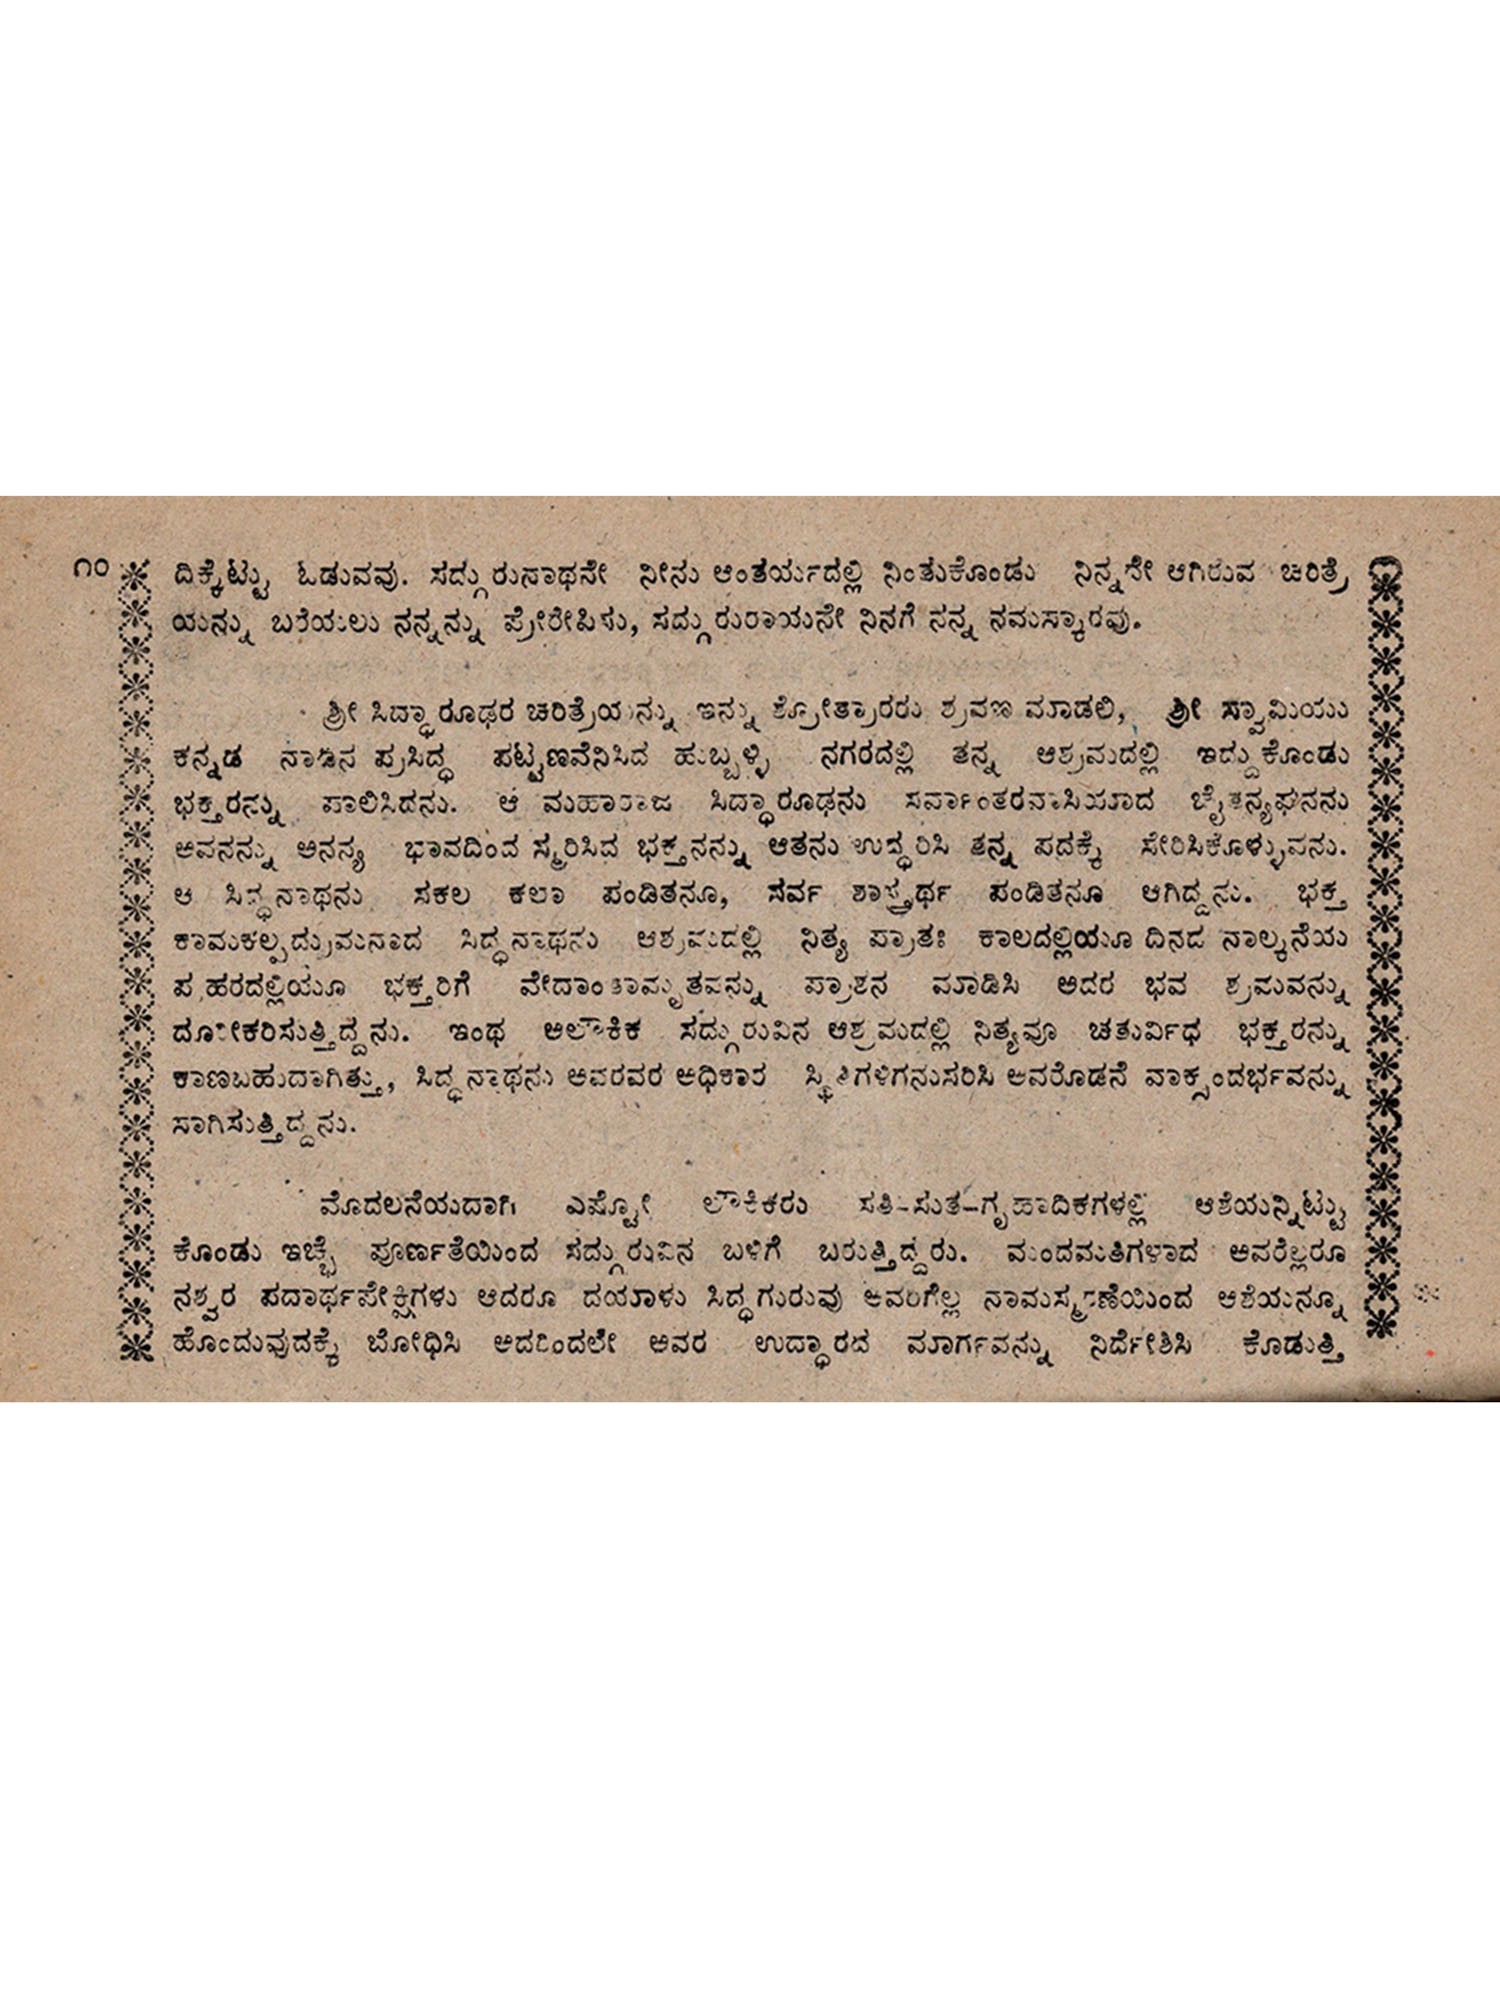 ೧೦
ದಿಕ್ಕೆಟ್ಟು ಓಡುವವು. ಸದ್ಗುರುನಾಥನೇ ನೀನು ಆಂತರ್ಯದಲ್ಲಿ ನಿಂತುಕೊಂಡು ನಿನ್ನದೇ ಆಗಿರುವ ಚರಿತ್ರೆ
ಯನ್ನು ಬರೆಯಲು ನನ್ನನ್ನು ಪ್ರೇರೇಪಿಸು, ಸದ್ಗುರುರಾಯನೇ ನಿನಗೆ ನನ್ನ ನಮಸ್ಕಾರವು.
ಶ್ರೀ ಸಿದ್ಧಾರೂಢರ ಚರಿತ್ರೆಯನ್ನು ಇನ್ನು ಶ್ರೋತ್ರಾರರು ಶ್ರವಣ ಮಾಡಲಿ, ಶ್ರೀ ಸ್ವಾಮಿಯು
ಕನ್ನಡ ನಾಡಿನ ಪ್ರಸಿದ್ಧ ಪಟ್ಟಣವೆನಿಸಿದ ಹುಬ್ಬಳ್ಳಿ ನಗರದಲ್ಲಿ ತನ್ನ ಆಶ್ರಮದಲ್ಲಿ ಇದ್ದುಕೊಂಡು
ಭಕ್ತರನ್ನು ಪಾಲಿಸಿದನು. ಆ ಮಹಾರಾಜ ಸಿದ್ಧಾರೂಢನು ಸರ್ವಾಂತರವಾಸಿಯಾದ ಚೈತನ್ಯಘನನು
ಅವನನ್ನು ಅನನ್ಯ ಭಾವದಿಂದ ಸ್ಮರಿಸಿದ ಭಕ್ತನನ್ನು ಆತನು ಉದ್ಧರಿಸಿ ತನ್ನ ಪದಕ್ಕೆ ಸೇರಿಸಿಕೊಳ್ಳುವನು.
ಆ ಸಿದ್ಧನಾಥನು ಸಕಲ ಕಲಾ ಪಂಡಿತನೂ, ಸರ್ವ ಶಾಸ್ತ್ರರ್ಥ ಪಂಡಿತನೂ ಆಗಿದ್ದನು. ಭಕ್ತ
ಕಾಮಕಲ್ಪದ್ರುಮನಾದ ಸಿದ್ಧನಾಥನು ಆಶ್ರಮದಲ್ಲಿ ನಿತ್ಯ ಪ್ರಾತಃ ಕಾಲದಲ್ಲಿಯೂ ದಿನದ ನಾಲ್ಕನೆಯ
ಪ್ರಹರದಲ್ಲಿಯೂ ಭಕ್ತರಿಗೆ ವೇದಾಂತಾಮೃತವನ್ನು ಪ್ರಾಶನ ಮಾಡಿಸಿ ಅದರ ಭವ ಶ್ರಮವನ್ನು
ದೂರೀಕರಿಸುತ್ತಿದ್ದನು. ಇಂಥ ಅಲೌಕಿಕ ಸದ್ಗುರುವಿನ ಆಶ್ರಮದಲ್ಲಿ ನಿತ್ಯವೂ ಚತುರ್ವಿಧ ಭಕ್ತರನ್ನು
ಕಾಣಬಹುದಾಗಿತ್ತು, ಸಿದ್ಧನಾಥನು ಅವರವರ ಅಧಿಕಾರ ಸ್ಥಿತಿಗಳಿಗನುಸರಿಸಿ ಅವರೊಡನೆ ವಾಕ್ಸಂದರ್ಭವನ್ನು
ಸಾಗಿಸುತ್ತಿದ್ದನು.
ಮೊದಲನೆಯದಾಗಿ ಎಷ್ಟೋ ಲೌಕಿಕರು ಸತಿ-ಸುತ-ಗೃಹಾದಿಕಗಳಲ್ಲಿ ಆಶೆಯನ್ನಿಟ್ಟು
ಕೊಂಡು ಇಚ್ಛೆ ಪೂರ್ಣತೆಯಿಂದ ಸದ್ಗುರುವಿನ ಬಳಿಗೆ ಬರುತ್ತಿದ್ದರು. ಮಂದಮತಿಗಳಾದ ಅವರೆಲ್ಲರೂ
ನಶ್ವರ ಪದಾರ್ಥಪೇಕ್ಷಿಗಳು ಆದರೂ ದಯಾಳು ಸಿದ್ಧಗುರುವು ಅವರಿಗೆಲ್ಲ ನಾಮಸ್ಮರಣೆಯಿಂದ ಆಶೆಯನ್ನೂ
ಹೊಂದುವುದಕ್ಕೆ ಬೋಧಿಸಿ ಅದರಿಂದಲೇ ಅವರ ಉದ್ಧಾರದ ಮಾರ್ಗವನ್ನು ನಿರ್ದೇಶಿಸಿ ಕೊಡುತ್ತಿ